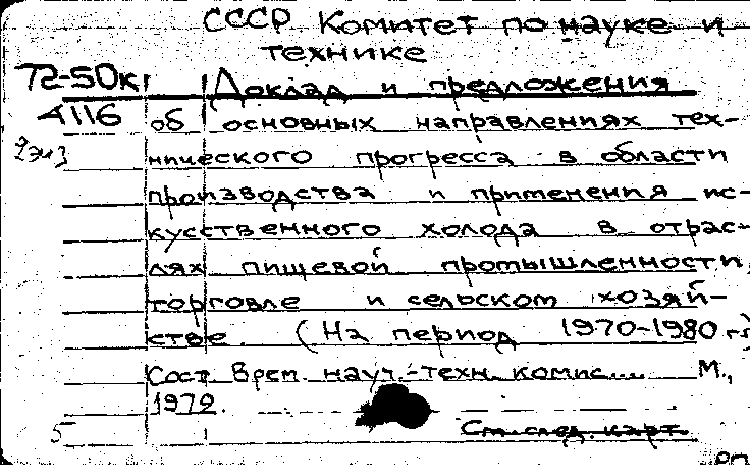 СССР Комитет по науке и
технике
72-50к Доклад и предложения
А116 об основных направлениях тех-
2экз нического прогресса в области
производства и применения ис-
кусственного холода в отрас-
лях пищевой промышленности,
торговле и сельском хозяй-
стве. (На период 1970-1980 гг)
Сост. Врем. науч.-техн. комис.... М.,
1972.
5 См. след. карт.